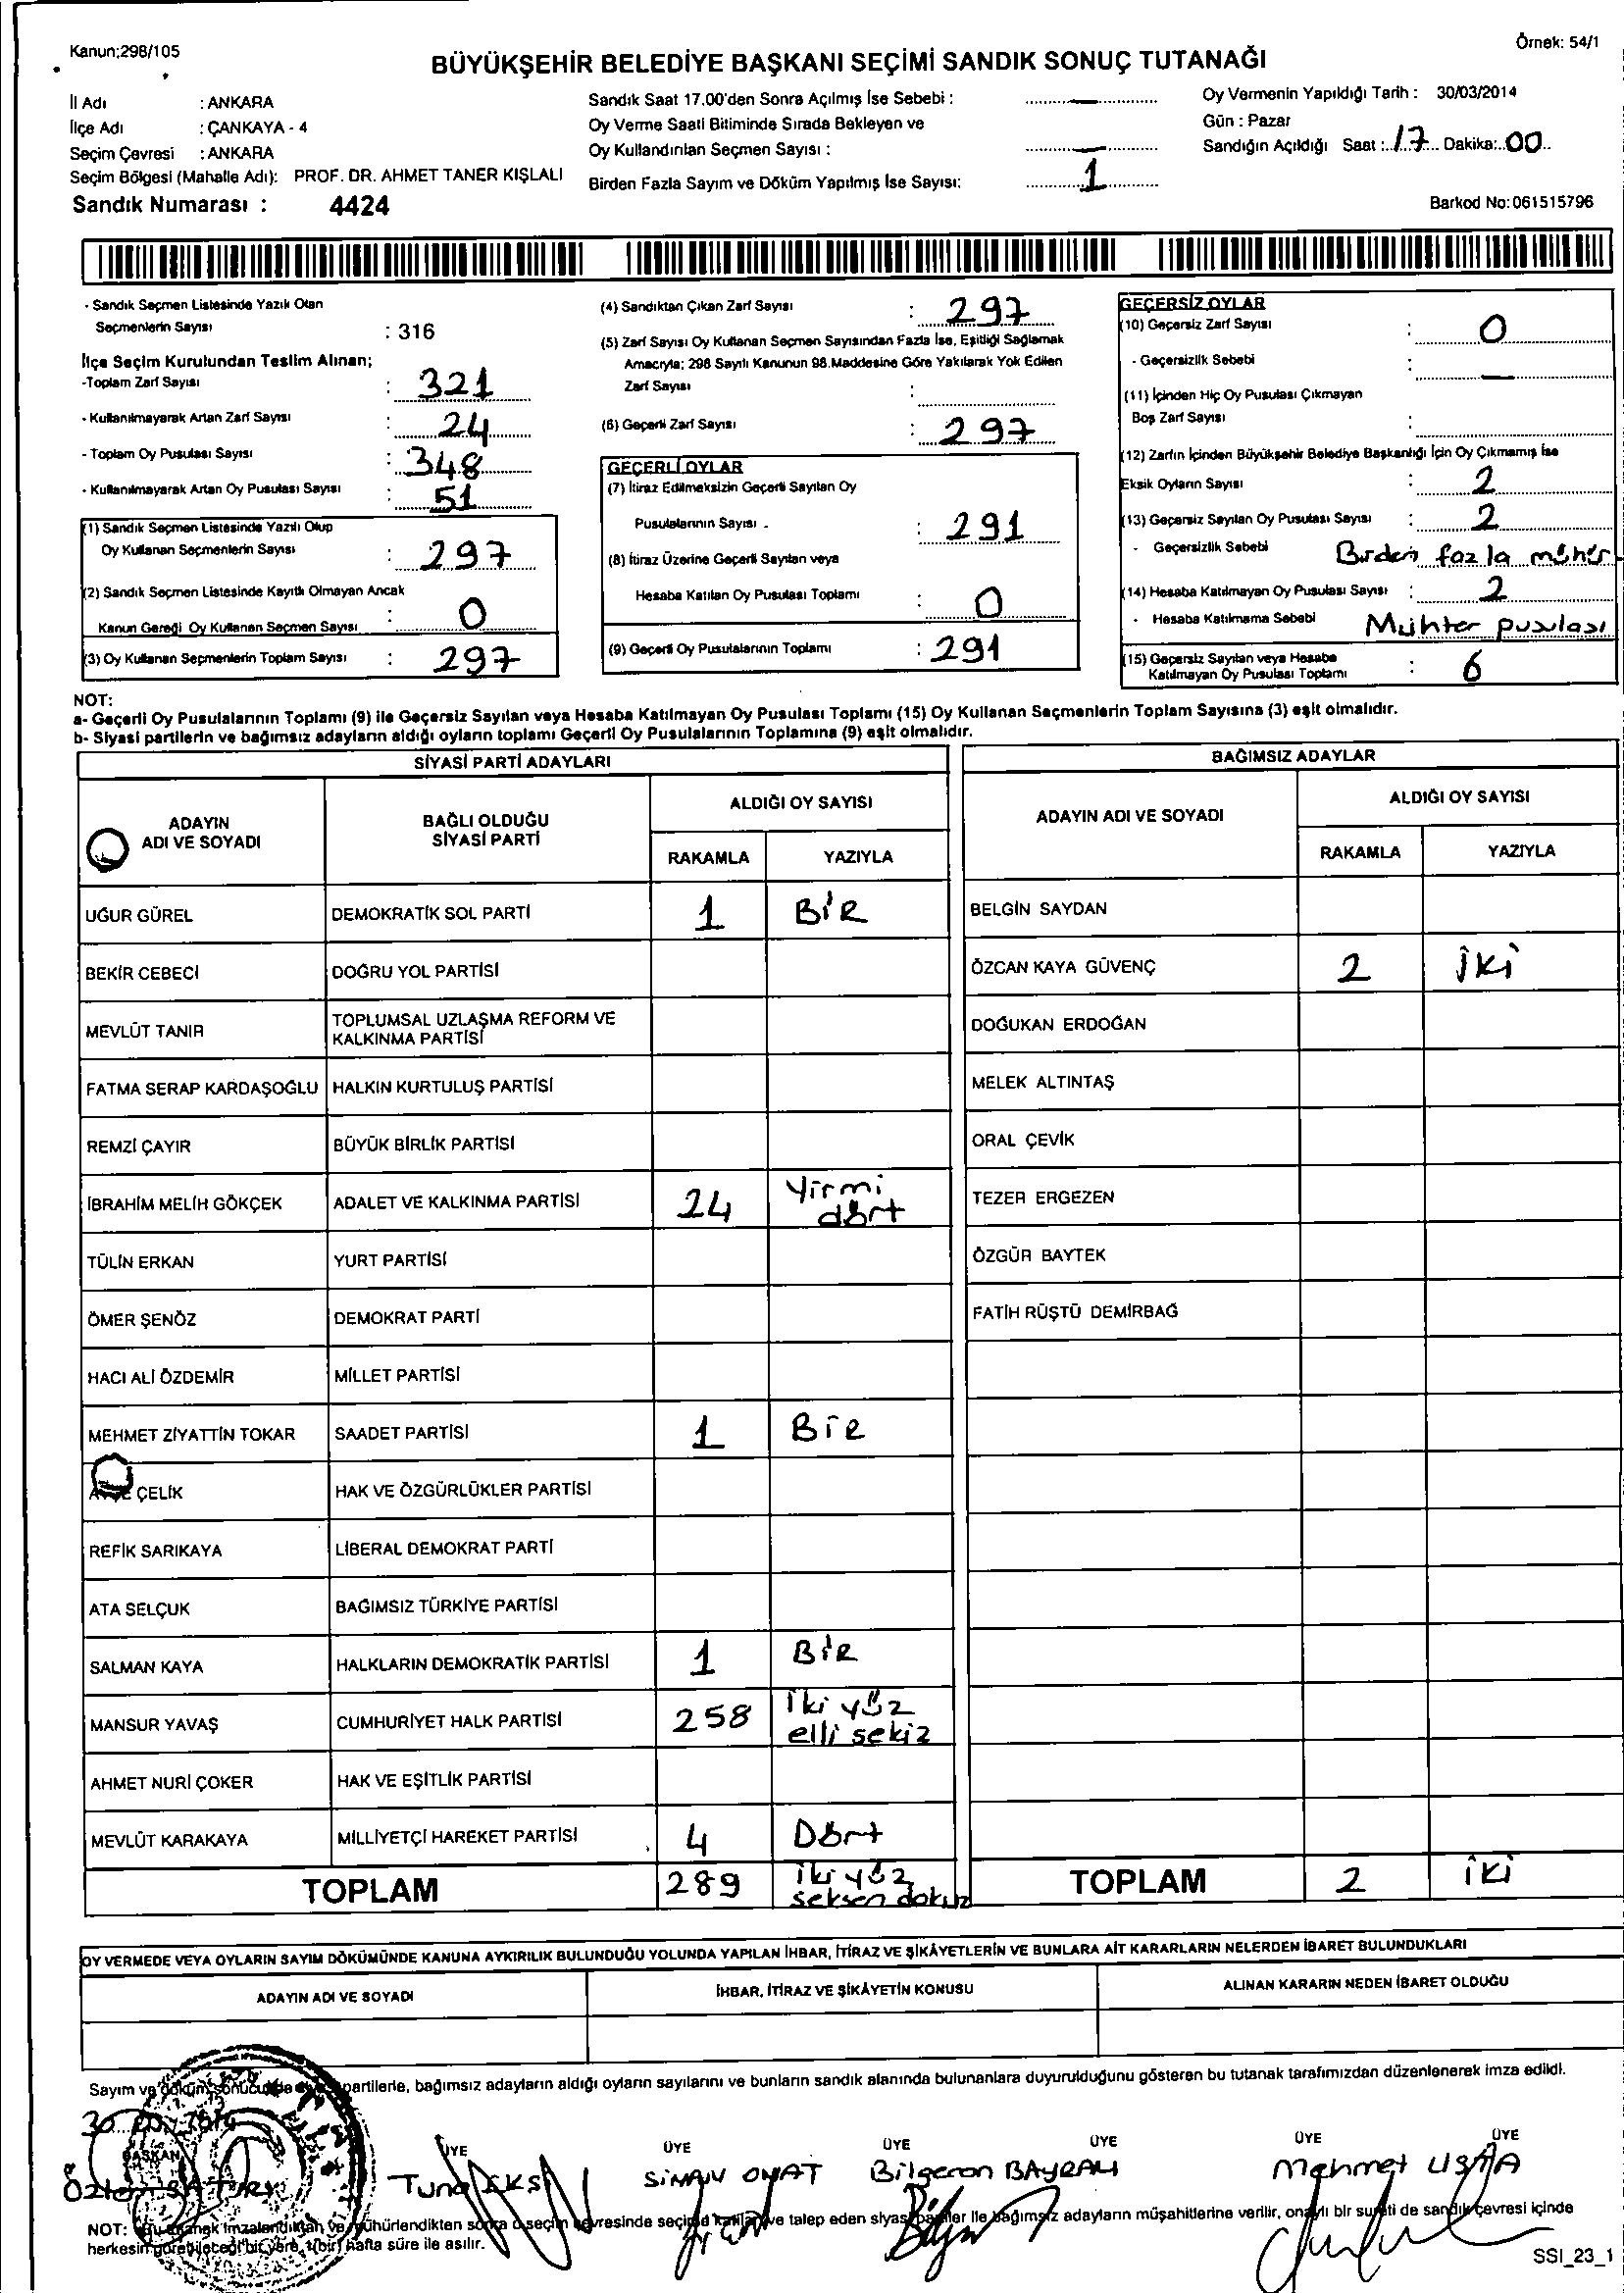 Kanun:298/105
Örnek: 54/1
BÜYÜKŞEHİR BELEDİYE BAŞKANI SEÇİMİ SANDIK SONUÇ TUTANAĞI
İl Adı : ANKARA
İlçe Adı : ÇANKAYA - 4
Seçim Çevresi : ANKARA
Seçim Bölgesi (Mahalle Adı): PROF. DR. AHMET TANER KIŞLALI
Sandık Numarası : 4424
Sandık Saat 17.00'den Sonra Açılmış İse Sebebi :
Oy Verme Saati Bitiminde Sırada Bekleyen ve
Oy Kullandırılan Seçmen Sayısı :
Birden Fazla Sayım ve Döküm Yapılmış İse Sayısı: 1
Oy Vermenin Yapıldığı Tarih : 30/03/2014
Gün : Pazar
Sandığın Açıldığı Saat : 17 Dakika: 00
Barkod No:061515796
- Sandık Seçmen Listesinde Yazılı Olan
Seçmenlerin Sayısı : 316
İlçe Seçim Kurulundan Teslim Alınan;
-Toplam Zarf Sayısı : 321
- Kullanılmayarak Artan Zarf Sayısı : 24
- Toplam Oy Pusulası Sayısı : 348
- Kullanılmayarak Artan Oy Pusulası Sayısı : 51
(1) Sandık Seçmen Listesinde Yazılı Olup
Oy Kullanan Seçmenlerin Sayısı : 297
(2) Sandık Seçmen Listesinde Kayıtlı Olmayan Ancak
Kanun Gereği Oy Kullanan Seçmen Sayısı : 0
(3) Oy Kullanan Seçmenlerin Toplam Sayısı : 297
(4) Sandıktan Çıkan Zarf Sayısı : 297
(5) Zarf Sayısı Oy Kullanan Seçmen Sayısından Fazla İse, Eşitliği Sağlamak
Amacıyla; 298 Sayılı Kanunun 98.Maddesine Göre Yakılarak Yok Edilen
Zarf Sayısı :
(6) Geçerli Zarf Sayısı : 297
GEÇERLİ OYLAR
(7) İtiraz Edilmeksizin Geçerli Sayılan Oy
Pusulalarının Sayısı . : 291
(8) İtiraz Üzerine Geçerli Sayılan veya
Hesaba Katılan Oy Pusulası Toplamı : 0
(9) Geçerli Oy Pusulalarının Toplamı : 291
GEÇERSİZ OYLAR
(10) Geçersiz Zarf Sayısı : 0
- Geçersizlik Sebebi :
(11) İçinden Hiç Oy Pusulası Çıkmayan
Boş Zarf Sayısı :
(12) Zarfın İçinden Büyükşehir Belediye Başkanlığı İçin Oy Çıkmamış İse
Eksik Oyların Sayısı : 2
(13) Geçersiz Sayılan Oy Pusulası Sayısı : 2
- Geçersizlik Sebebi Birden fazla mühür
(14) Hesaba Katılmayan Oy Pusulası Sayısı : 2
- Hesaba Katılmama Sebebi Muhtar pusulası
(15) Geçersiz Sayılan veya Hesaba
Katılmayan Oy Pusulası Toplamı : 6
NOT:
a- Geçerli Oy Pusulalarının Toplamı (9) ile Geçersiz Sayılan veya Hesaba Katılmayan Oy Pusulası Toplamı (15) Oy Kullanan Seçmenlerin Toplam Sayısına (3) eşit olmalıdır.
b- Siyasi partilerin ve bağımsız adayların aldığı oyların toplamı Geçerli Oy Pusulalarının Toplamına (9) eşit olmalıdır.
SİYASİ PARTİ ADAYLARI
ADAYIN ADI VE SOYADI
BAĞLI OLDUĞU SİYASİ PARTİ
ALDIĞI OY SAYISI
RAKAMLA YAZIYLA
UĞUR GÜREL DEMOKRATİK SOL PARTİ 1 BİR
BEKİR CEBECİ DOĞRU YOL PARTİSİ
MEVLÜT TANIR TOPLUMSAL UZLAŞMA REFORM VE
KALKINMA PARTİSİ
FATMA SERAP KARDAŞOĞLU HALKIN KURTULUŞ PARTİSİ
REMZİ ÇAYIR BÜYÜK BİRLİK PARTİSİ
İBRAHİM MELİH GÖKÇEK ADALET VE KALKINMA PARTİSİ 24 Yirmi
dört
TÜLİN ERKAN YURT PARTİSİ
ÖMER ŞENÖZ DEMOKRAT PARTİ
HACI ALİ ÖZDEMİR MİLLET PARTİSİ
MEHMET ZİYATTİN TOKAR SAADET PARTİSİ 1 BİR
ÇELİK HAK VE ÖZGÜRLÜKLER PARTİSİ
REFİK SARIKAYA LİBERAL DEMOKRAT PARTİ
ATA SELÇUK BAĞIMSIZ TÜRKİYE PARTİSİ
SALMAN KAYA HALKLARIN DEMOKRATİK PARTİSİ 1 BİR
MANSUR YAVAŞ CUMHURİYET HALK PARTİSİ 258 İki yüz
elli sekiz
AHMET NURİ ÇOKER HAK VE EŞİTLİK PARTİSİ
MEVLÜT KARAKAYA MİLLİYETÇİ HAREKET PARTİSİ 4 Dört
TOPLAM 289 iki yüz
seksen dokuz
BAĞIMSIZ ADAYLAR
ADAYIN ADI VE SOYADI
ALDIĞI OY SAYISI
RAKAMLA YAZIYLA
BELGİN SAYDAN
ÖZCAN KAYA GÜVENÇ 2 İKİ
DOĞUKAN ERDOĞAN
MELEK ALTINTAŞ
ORAL ÇEVİK
TEZER ERGEZEN
ÖZGÜR BAYTEK
FATİH RÜŞTÜ DEMİRBAĞ
TOPLAM 2 İKİ
OY VERMEDE VEYA OYLARIN SAYIM DÖKÜMÜNDE KANUNA AYKIRILIK BULUNDUĞU YOLUNDA YAPILAN İHBAR, İTİRAZ VE ŞİKÂYETLERİN VE BUNLARA AİT KARARLARIN NELERDEN İBARET BULUNDUKLARI
ADAYIN ADI VE SOYADI
İHBAR, İTİRAZ VE ŞİKÂYETİN KONUSU
ALINAN KARARIN NEDEN İBARET OLDUĞU
Sayım ve döküm sonucunda partilerle, bağımsız adayların aldığı oyların sayılarını ve bunların sandık alanında bulunanlara duyurulduğunu gösteren bu tutanak tarafımızdan düzenlenerek imza edildi.
BAŞKAN ÜYE ÜYE ÜYE ÜYE ÜYE ÜYE
Tuna SİNAN ONAT Bilgeran BAYRAM Mehmet USTA
NOT: Bu tutanak imzalandıktan ve mühürlendikten sonra o seçim çevresinde seçime katılan ve talep eden siyasi partiler ile bağımsız adayların müşahitlerine verilir, onaylı bir sureti de sandık çevresi içinde
herkesin görebileceği bir yere, 1(bir) hafta süre ile asılır.
SSI_23_1